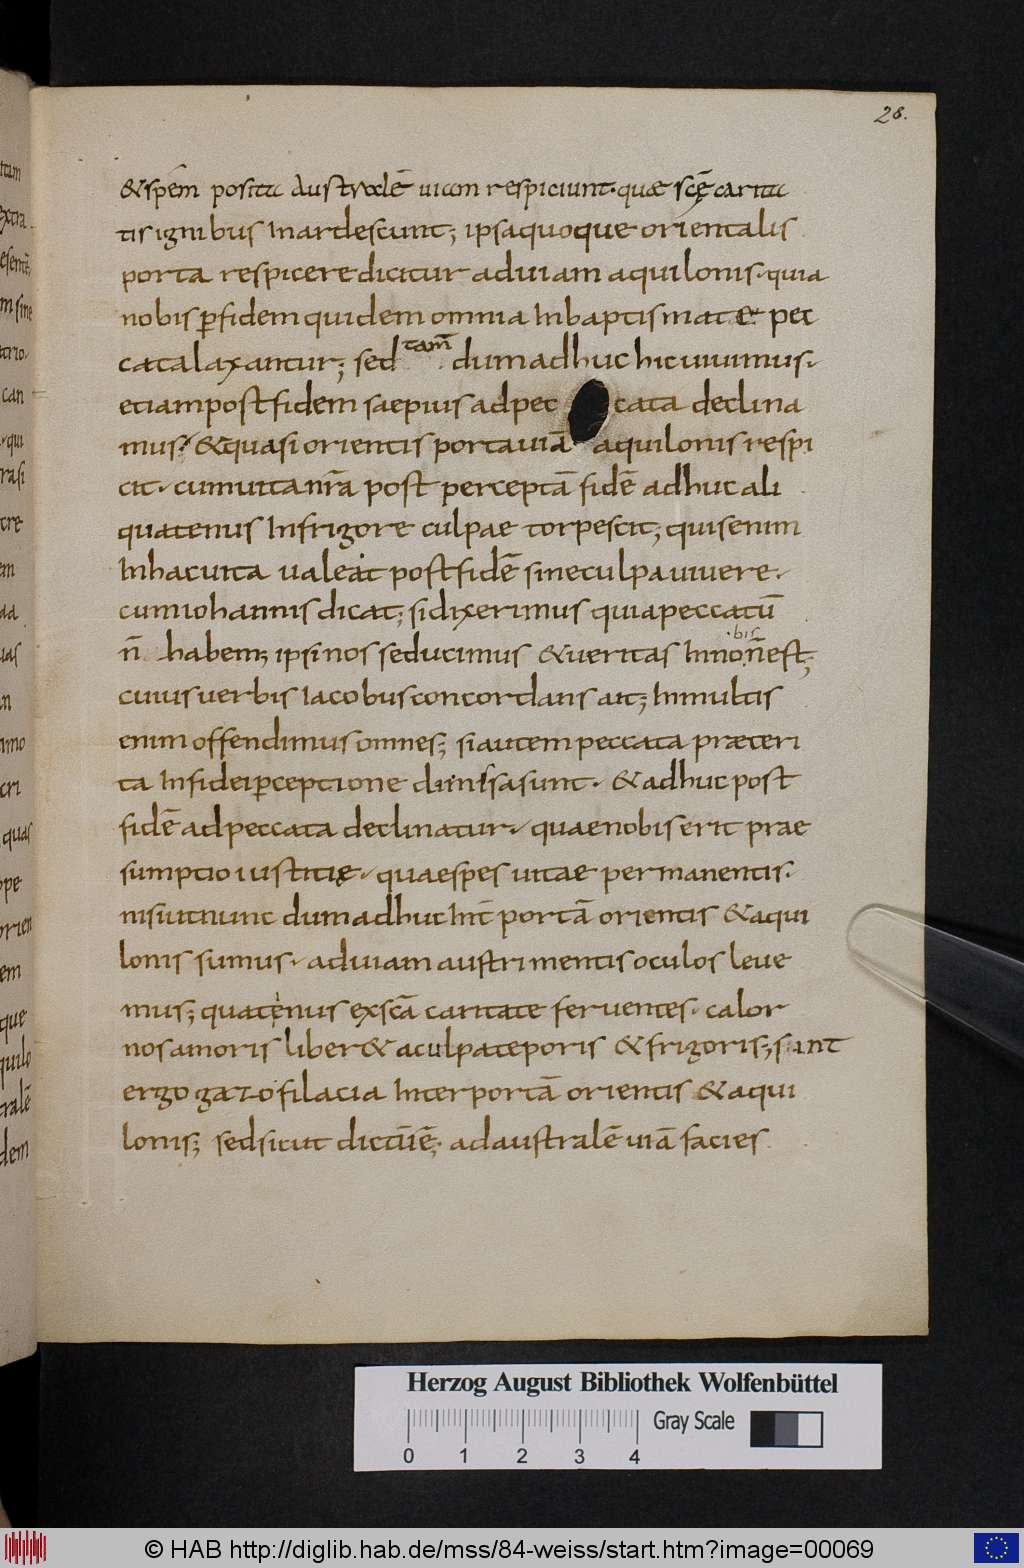 28.
&spēm posita australē uiam respiciunt· quae scę carita
tis ignibus Inardescunt; ipsa quoque orientalis
porta respicere dicitur ad uiam aquilonis· quia
nobis ꝑ fidem quidem omnia In baptismate pec
cata laxantur; sed tam̄ dum adhuc hic uiuimus·
etiam post fidem saepius ad pec cata declina
mus· & quasi orientis porta uiā aquilonis respi
cit· cum uita nr̄a post perceptā fidē adhuc ali
quatenus In frigore culpae torpescit; quis enim
In hac uita ualeat post fidē sine culpa uiuere·
cum iohannis dicat; si dixerimus quia peccatū
n̄ habem; ipsi nos seducimus & ueritas In nobis n̄ est;
cuius uerbis Iacobus concordans ait; In multis
enim offendimus omnes; si autem peccata praeteri
ta In fidei ꝑceptione dimissa sunt· & adhuc post
fidē ad peccata declinatur· quae nobis erit prae
sumptio iustitię· quae spes uitae permanentis·
nisi ut nunc dum adhuc Int̄ portā orientis & aqui
lonis sumus· ad uiam austri mentis oculos leue
mus; quatenus ex scā caritate feruentes· calor
nos amoris liber& a culpa teporis & frigoris; sunt
ergo gazofilacia Inter portā orientis & aqui
lonis; sed sicut dictū ē; ad australē uiā facies
Herzog August Bibliothek Wolfenbüttel
Gray Scale
0 1 2 3 4
© HAB http://diglib.hab.de/mss/84-weiss/start.htm?image=00069